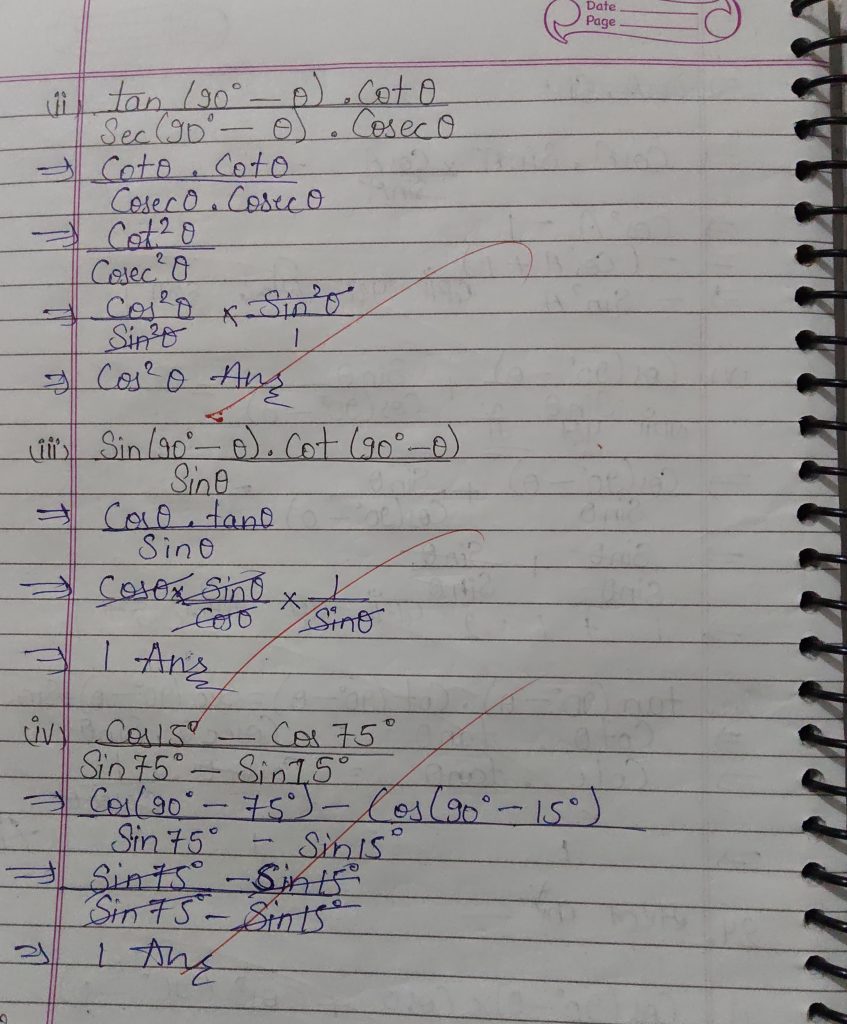 Date
Page
(ii) tan (90° - θ) . Cot θ
Sec (90° - θ) . Cosec θ
⇒ Cot θ . Cot θ
Cosec θ . Cosec θ
⇒ Cot² θ
Cosec² θ
⇒ Cos² θ × Sin² θ
Sin² θ 1
⇒ Cos² θ Ans
(iii) Sin (90° - θ) . Cot (90° - θ)
Sin θ
⇒ Cos θ . tan θ
Sin θ
⇒ Cos θ × Sin θ × 1
Cos θ Sin θ
⇒ 1 Ans
(iv) Cos 15° - Cos 75°
Sin 75° - Sin 15°
⇒ Cos (90° - 75°) - Cos (90° - 15°)
Sin 75° - Sin 15°
⇒ Sin 75° - Sin 15°
Sin 75° - Sin 15°
⇒ 1 Ans